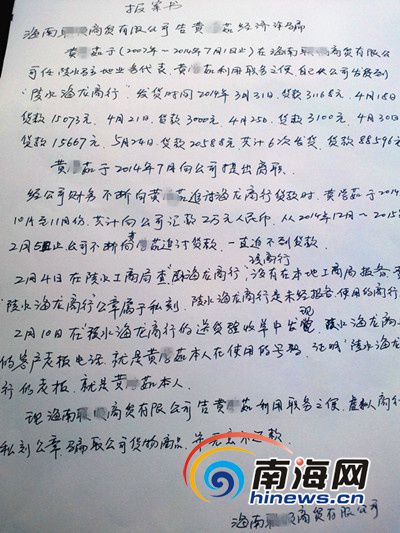 报案书
海南 商贸有限公司告黄 茹经济诈骗
黄 茹于(2002年～2014年7月1日止)在海南 商贸有限公
司任陵水 地业务代表,黄 茹利用职务之便,自从公司发货到
"陵水海龙商行",发货时间2014年3月31日,货款31168元,4月18日
货款15073元,4月21日,货款3000元,4月25日,货款3100元,4月30日
货款15667元,5月24日,货款20588元共计6次发货,货款88596元
黄 茹于2014年7月向公司提出离职
经公司财务不断向黄 茹追讨海龙商行货款时,黄 茹于2014
10月至11月份,共计向公司汇款2万元人民币,从2014年12月～2015
2月5日止公司不断向黄 茹追讨货款,一直追不到货款
该商行
2月4日在陵水工商局查"陵水海龙商行"没有在本地工商局报备,
"陵水海龙商行"公章属于私刻,陵水海龙商行是未经报备使用的商行
2月10日在"陵水海龙商行的送货签收单中发现,陵水海龙商
的客户老板电话,就是黄 茹本人在使用的号码,证明"陵水海龙
行的老板,就是黄 茹本人.
现海南 商贸有限公司告黄 茹利用职务之便,虚拟商行
私刻公章骗取公司货物商品,并无 还款.
海南 商贸有限公司
南海网
hinews.cn